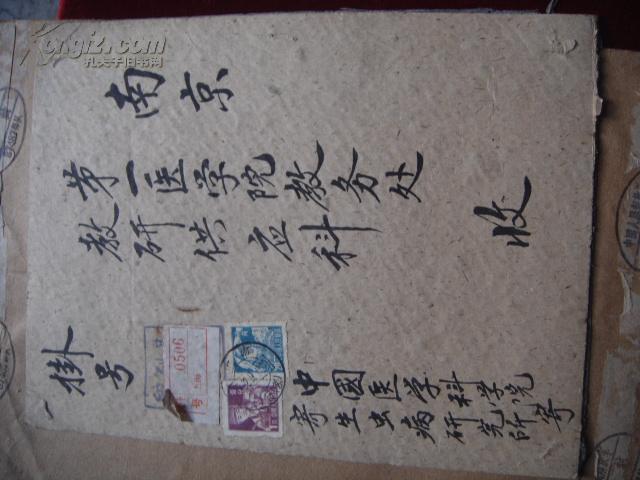 南京
第一医学院教务处
教研供应科
收
挂号
0506
号
中國医学科学院
寄生虫病研究所寄
Kongfz.com
孔夫子旧书网